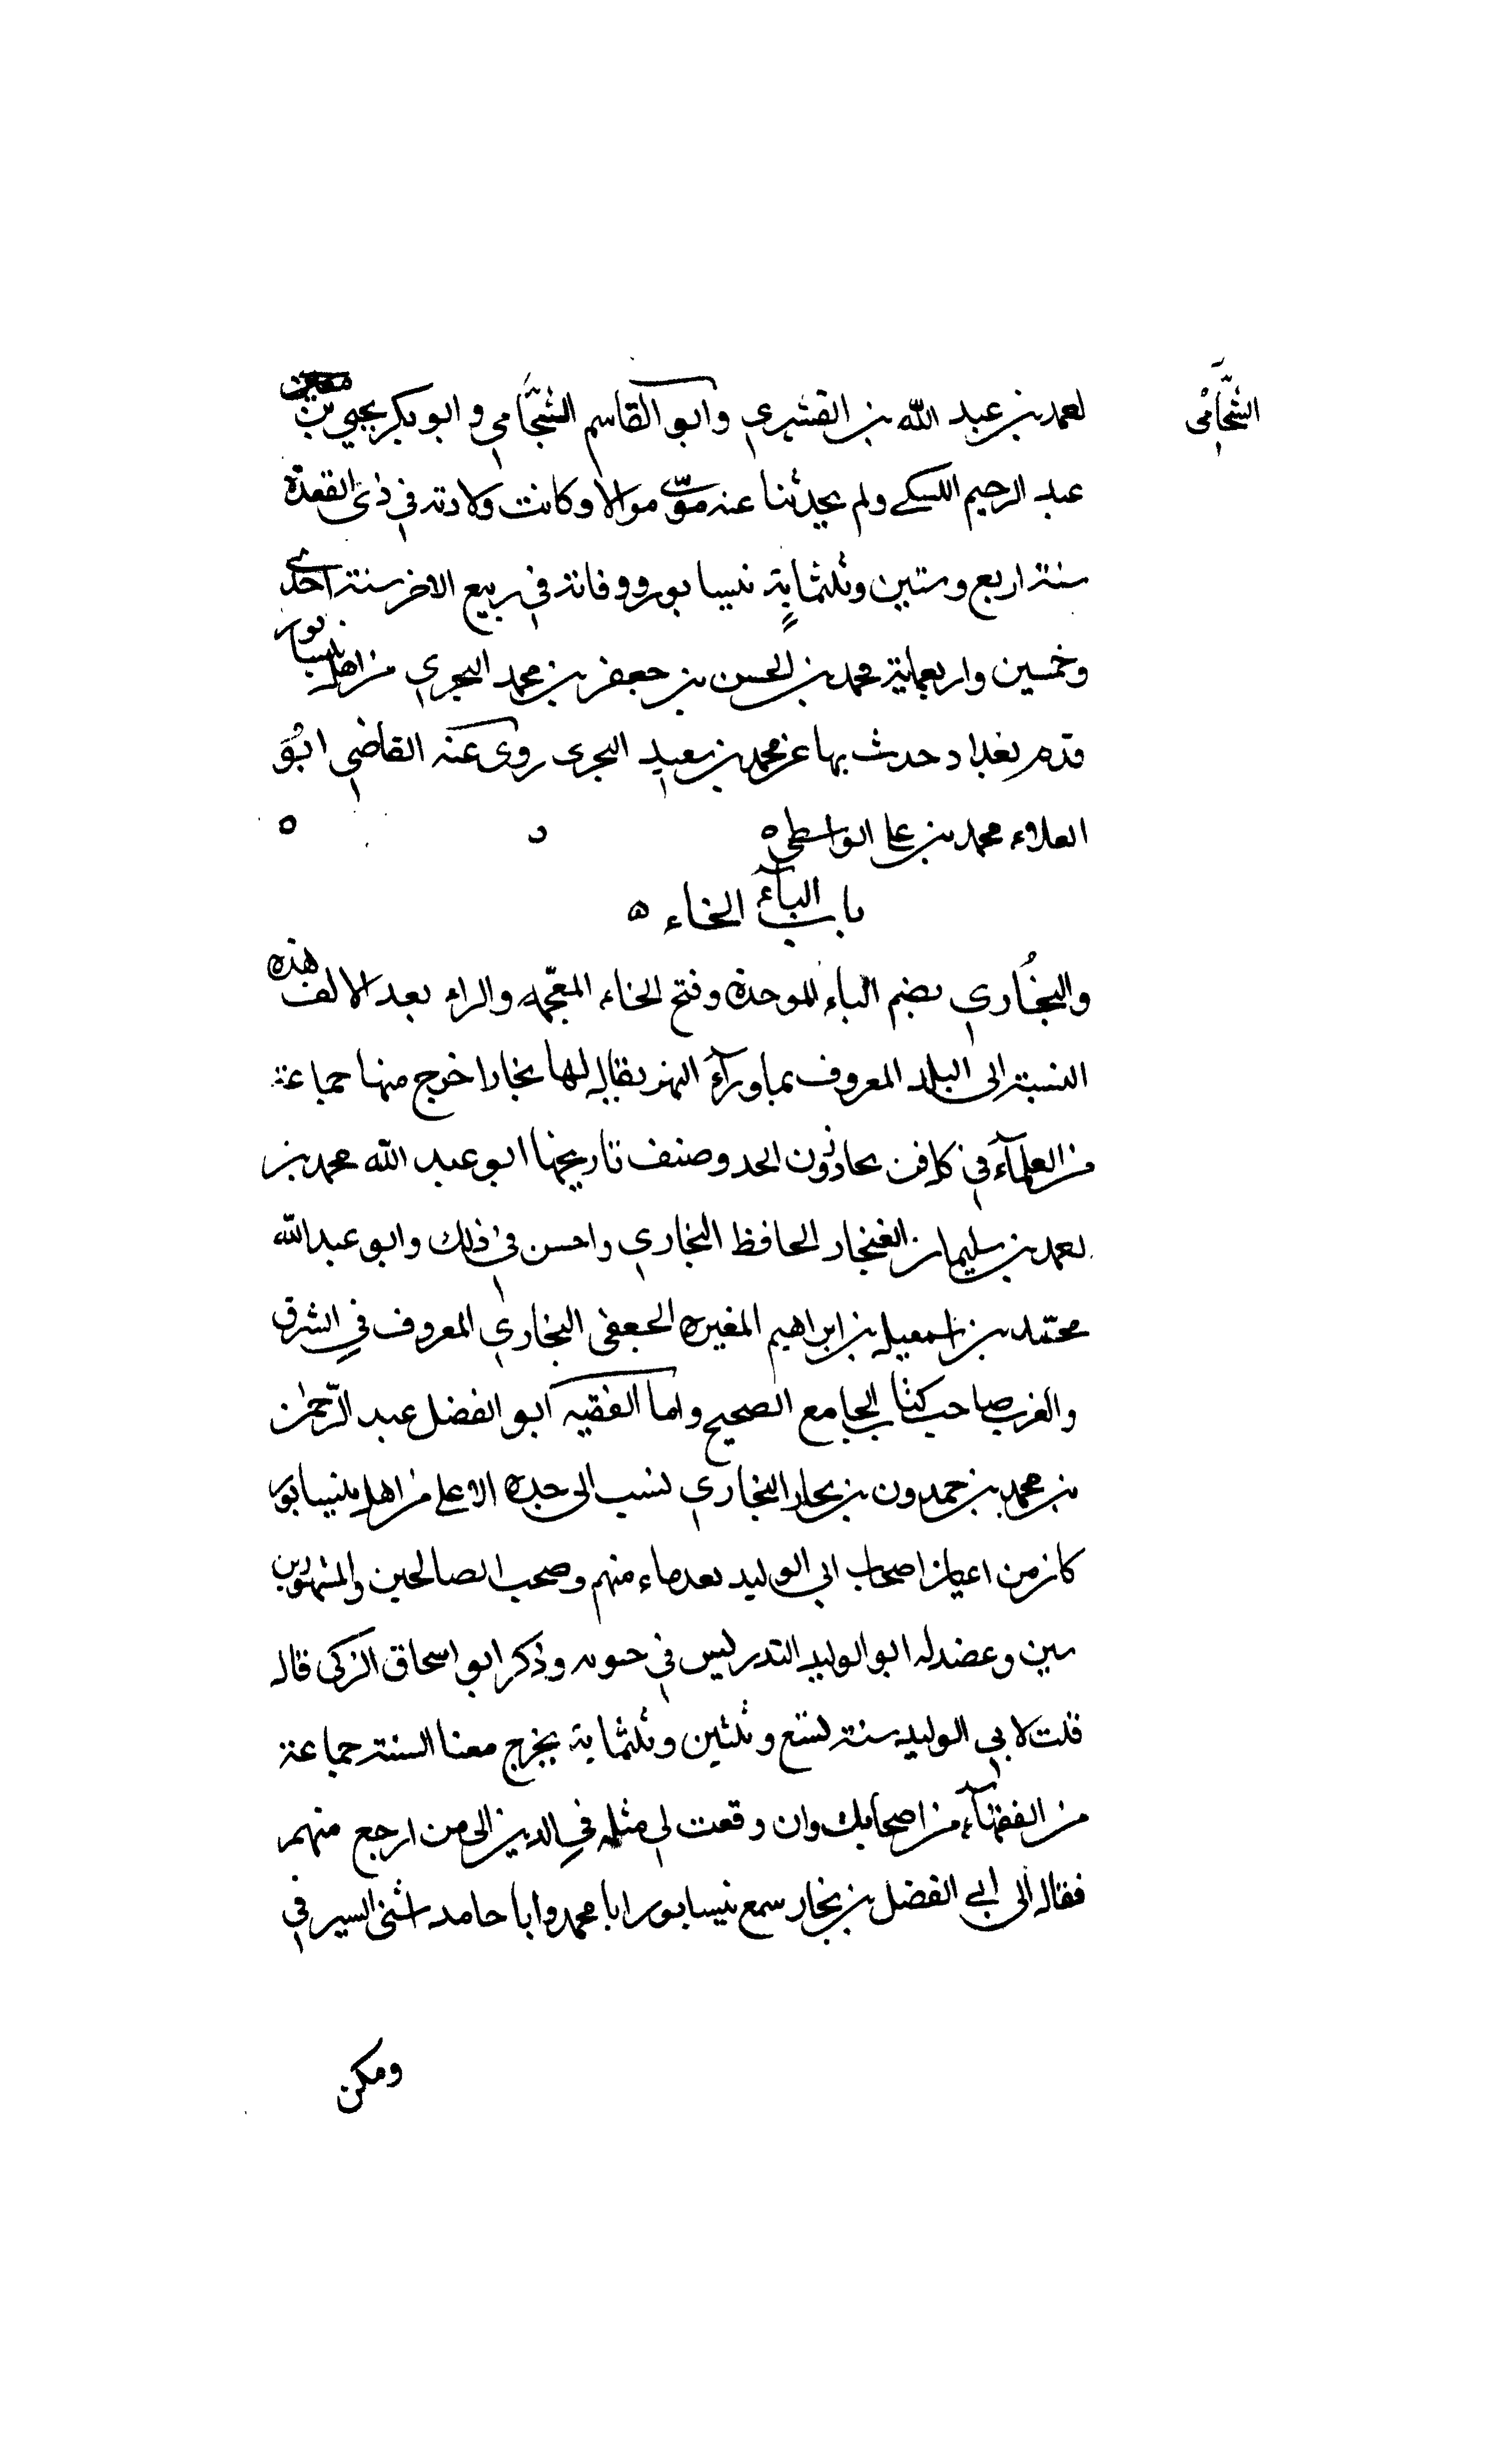 الشَّحَّامي
احمد بن عبد الله بن القشيري وابو القاسم الشحَّامي وابو بكر يحيي بن
عبد الرحيم اللسكي ولم يحدثنا عنه سوى هولاء وكانت ولادته في ذي القعدة
سنة اربع وستين وثلثماية بنيسابور ووفاته في ربيع الاخر سنة احدى
وخمسين واربعماية محمد بن الحسن بن جعفر بن محمد البحري من اهل نيسابور
قدم بغداد حدث بها عن محمد بن سعيد البحري روى عنه القاضي ابو
العلاء محمد بن علي الواسطي ه
باب الباء الخاء ه
والبخُاري بضم الباء الموحدة وفتح الخاء المعجمه والراء بعد الالف هذه
النسبة الى البلد المعروف بماورآء النهر يقال لها بخارا خرج منها جماعة
من العلمآء في كل فن يجاوزون الحد وصنف تاريخها ابو عبد الله محمد بن
احمد بن سليمان الغنجار الحافظ البخاري واحسن في ذلك وابو عبد الله
محمد بن اسمعيل بن ابراهيم المغيره الجعفي البخاري المعروف في الشرق
والغرب صاحب كتاب الجامع الصحيح واما الفقيه ابو الفضل عبد الرحمن
بن محمد بن حمدون بن بخار البخاري نسب الى جده الاعلى من اهل نيسابور
كان من اعيان اصحاب ابي الوليد منهم وصحب الصالحين والمشهورين
وعضد له ابو الوليد التدريس في وذكر ابو اسحاق المزكي قال
قلت لابي الوليد سنة تسع وثلثين وثلثماية يخرج معنا السنة جماعة
من الفقهآء من اصحابك وان وقعت لي مثله في الدين الى من ارجع منهم
فقال الى ابي الفضل بن بخار سمع بنيسابور ابا محمد وابا حامد اثني السيرفي
ومكن